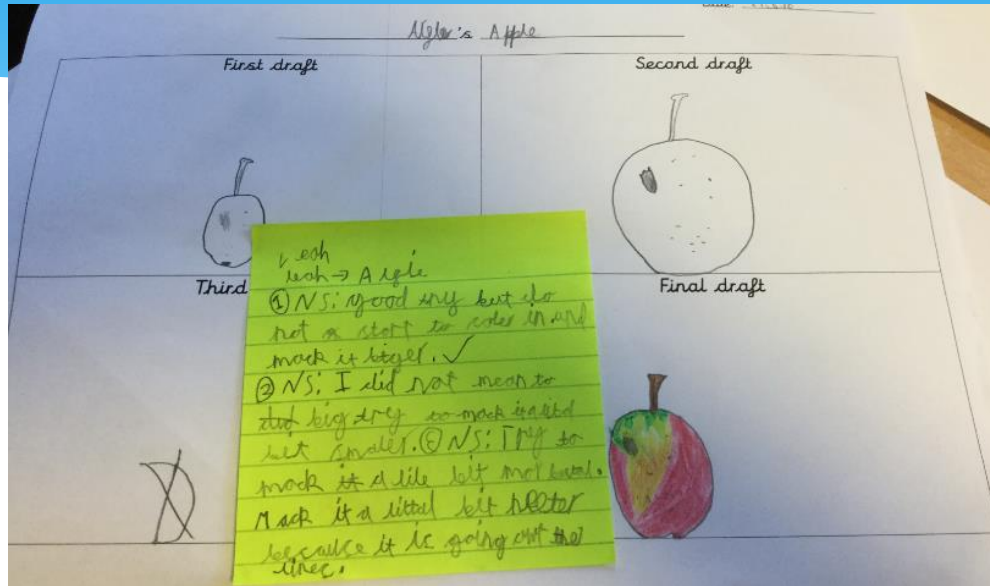 Apple
First draft
Second draft
Third
Final draft
leah → Algie
① NS: good try but do
not start to coler in and
mack it biger. ✓
② NS: I did not mean to
big try to mack it a
bit smaler. NS: Try to
mack it a litle bit mor
Mack it a littal bit
because it is going out the
lines.